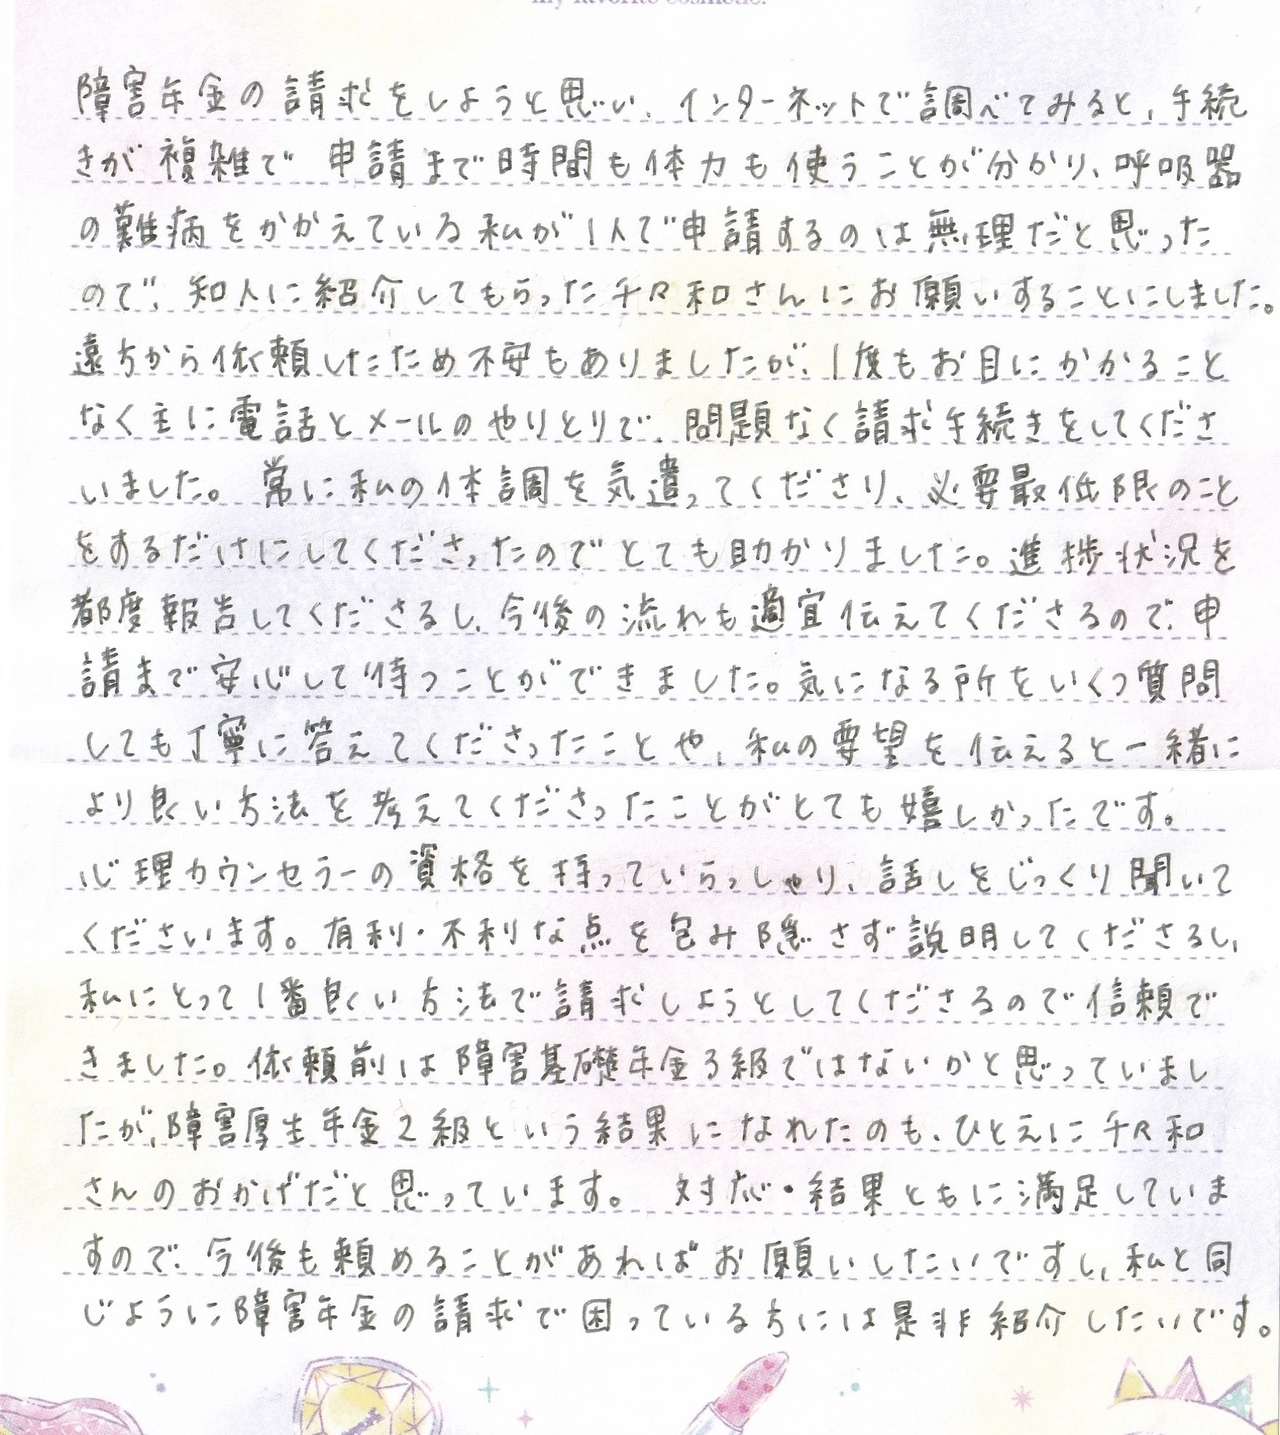 my favorite cosmetic.
障害年金の請求をしようと思い、インターネットで調べてみると、手続
きが複雑で 申請まで時間も体力も使うことが分かり、呼吸器
の難病をかかえている私が1人で申請するのは無理だと思った
ので、知人に紹介してもらった千々和さんにお願いすることにしました。
遠方から依頼したため不安もありましたが、1度もお目にかかること
なく主に電話とメールのやりとりで、問題なく請求手続きをしてくださ
いました。 常に私の体調を気遣ってくださり、必要最低限のこと
をするだけにしてくださったのでとても助かりました。進捗状況を
都度報告してくださるし、今後の流れも適宜伝えてくださるので、申
請まで安心して待つことができました。気になる所をいくつ質問
しても丁寧に答えてくださったことや、私の要望を伝えると一緒に
より良い方法を考えてくださったことがとても嬉しかったです。
心理カウンセラーの資格を持っていらっしゃり、話しをじっくり聞いて
くださいます。有利・不利な点を包み隠さず説明してくださるし、
私にとって1番良い方法で請求しようとしてくださるので信頼で
きました。依頼前は障害基礎年金3級ではないかと思っていまし
たが、障害厚生年金2級という結果になれたのも、ひとえに千々和
さんのおかげだと思っています。 対応・結果ともに満足していま
すので、今後も頼めることがあればお願いしたいですし、私と同
じように障害年金の請求で困っている方には是非紹介したいです。